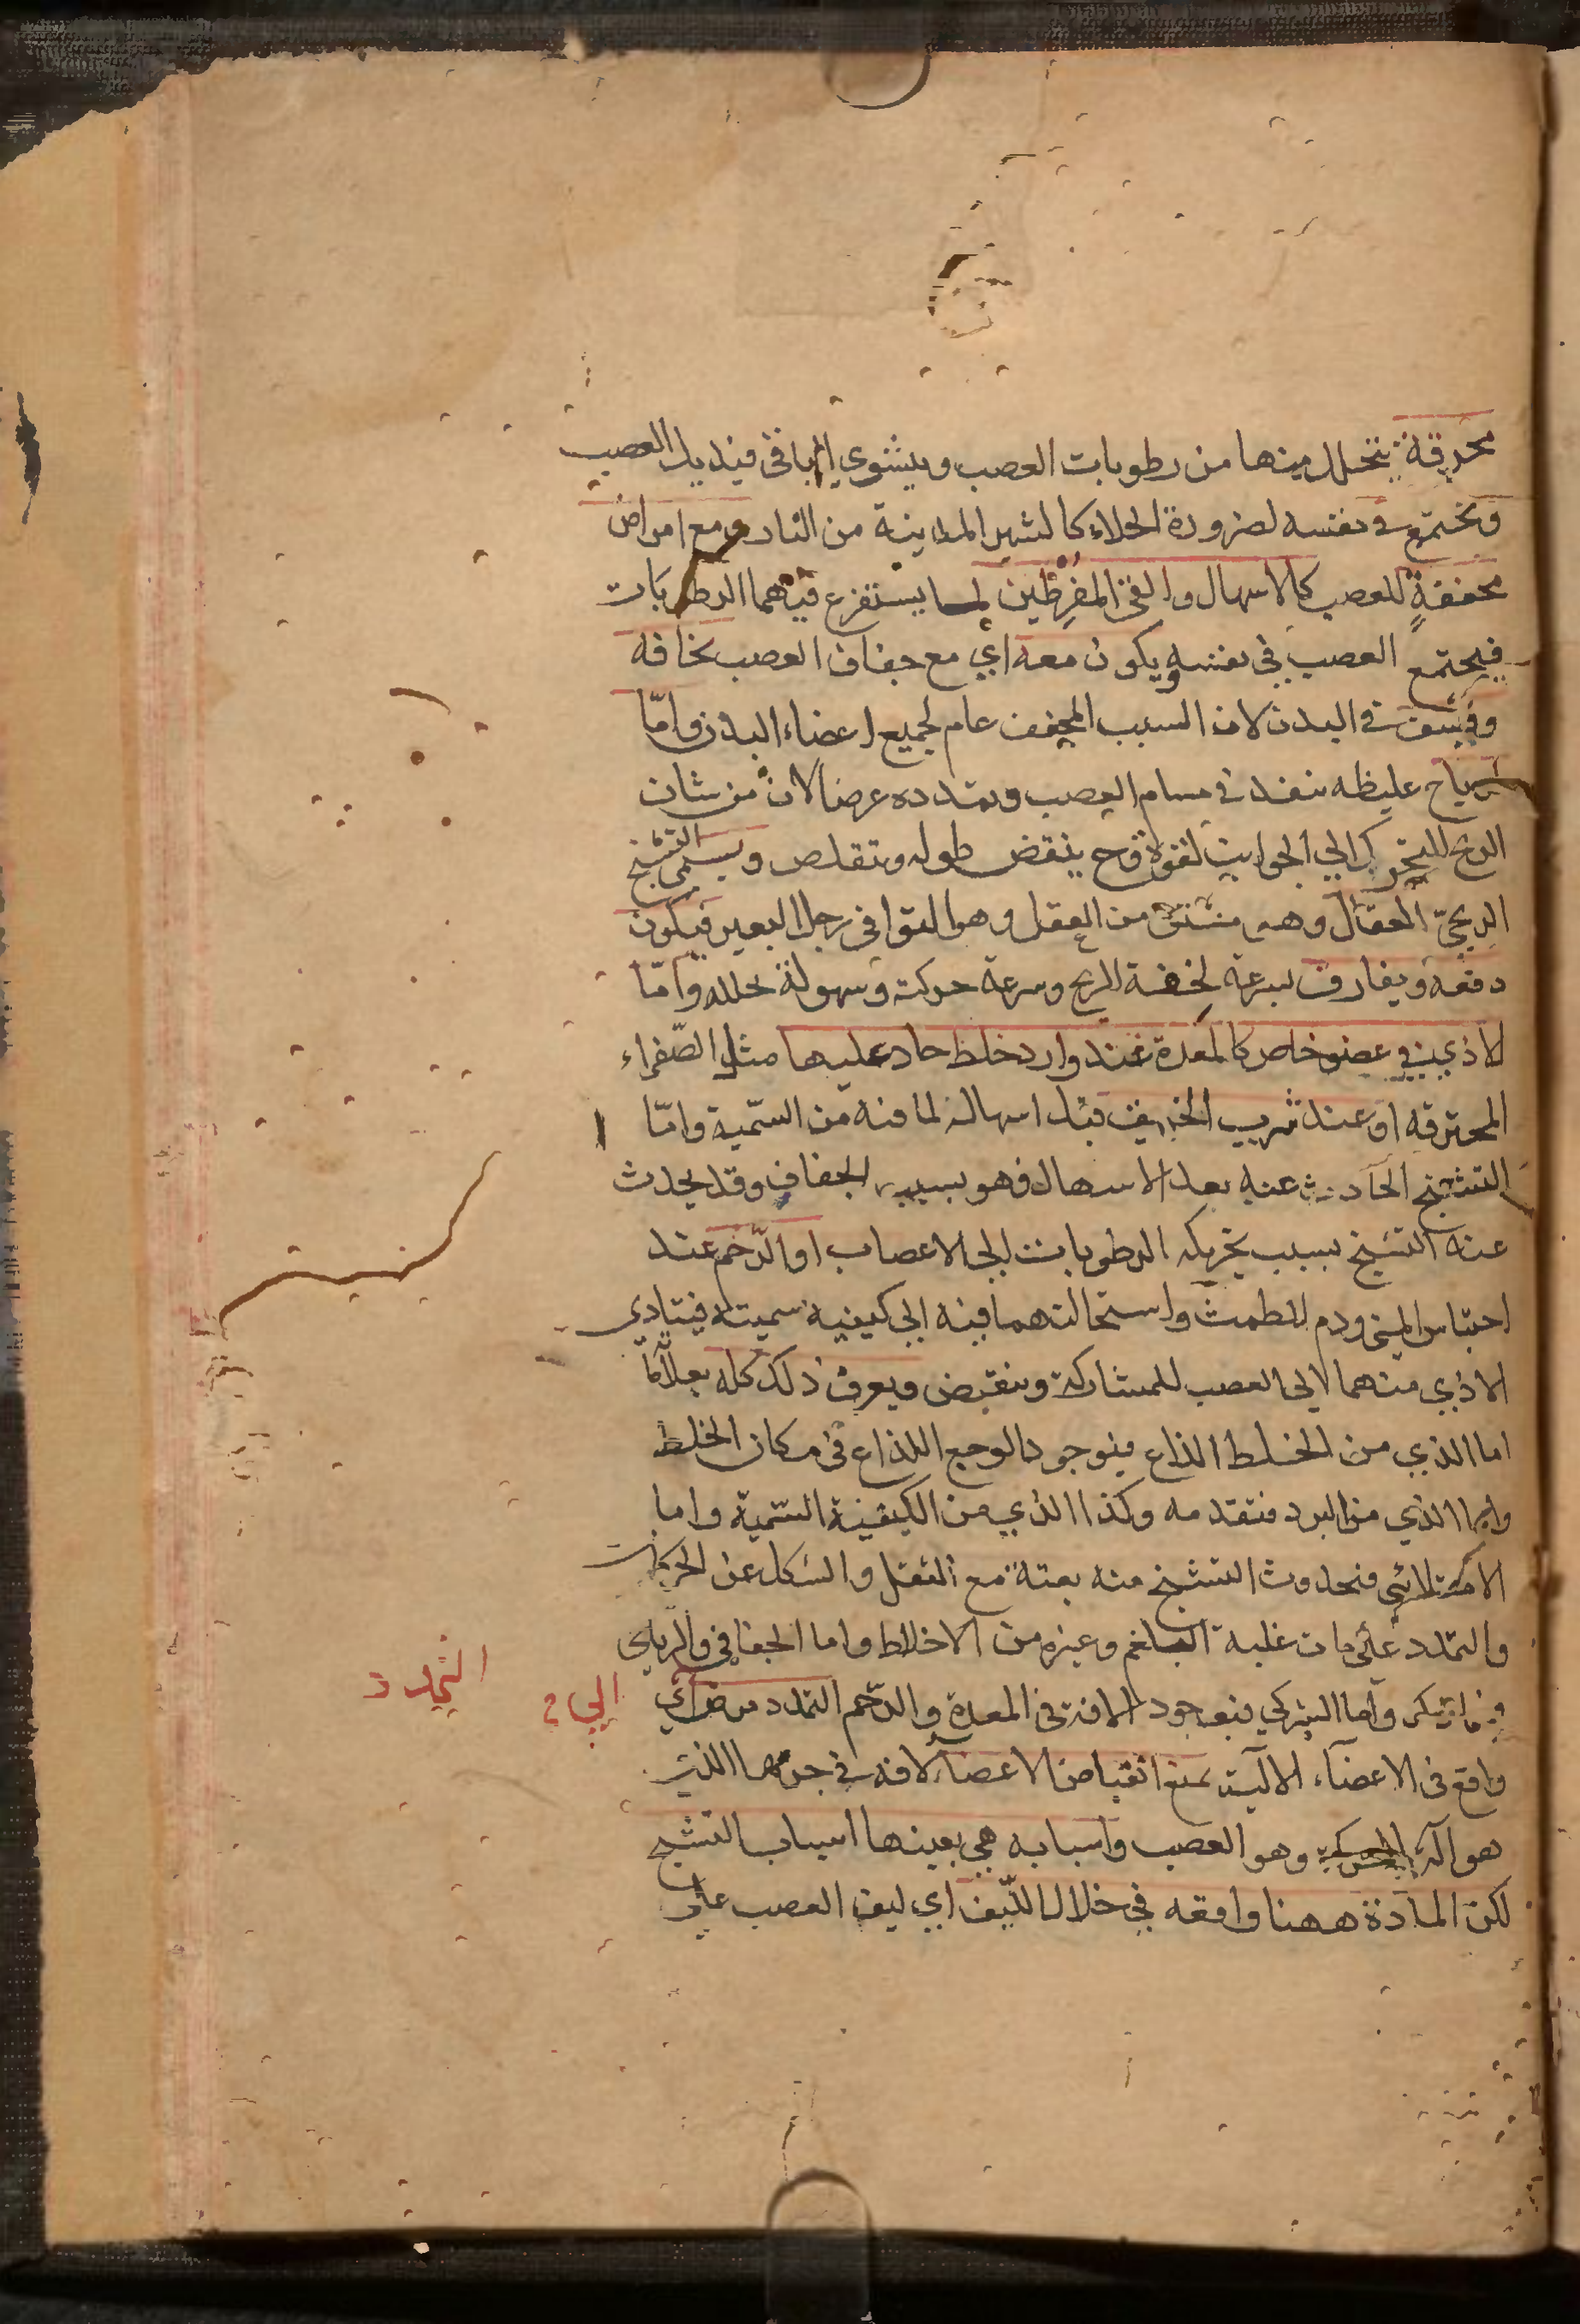 محرقة يتحلل منها من رطوبات العصب ويشوي الباقي فيذبل العصب
ويجتمع في نفسه لضرورة الخلاء كالشهر المدنية من النار ومع امراض
مجففة للعصب كالاسهال والقئ المفرطين لما يستفرغ فيهما الرطوبات
فيجتمع العصب في نفسه ويكون معه اي مع جفاف العصب نحافة
وقشف في البدن لان السبب المجفف عام لجميع اعضاء البدن واما
لرياح غليظه تنفذ في مسام العصب وتمدده عرضا لان من شان
الريح التحرك الي الجوانب لقوة وح ينقص طوله وتقلص ويسمي التشنج
الريحيّ العقال وهو مشتق من العقل وهو التوا في رجل البعير فيكون
دفعة ويفارق بسرعة لخفة الريح وسرعة حركته وسهولة تحلله واما
لاذي في عضو خاص كالمعدة عند وارد خلط حاد عليها مثل الصّفراء
المحترقه او عند شرب الخربق قبل اسهاله لما فيه من السّمية وامّا
التشنج الحادث عنه بعد الاسهال فهو بسبب الجفاف وقد يحدث
عنه التشنج بسبب تحريكه الرطوبات الي الاعصاب او الرّحم عند
احتباس المني ودم الطمث واستحالتهما فيه الي كيفية سمية فيتادي
الاذي منهما الي العصب للمشاركة وينقبض ويعرف ذلك كله بعلاماته
اما الذي من الخلط اللذاع فبوجود الوجع اللذاع في مكان الخلط
واما الذي من البرد فتقدمه وكذا الذي من الكيفية السّمية واما
الامتلائي فبحدوث التشنج منه بغتة مع الثقل والكسل عن الحركات
والتمدد علامات غلبة البلغم وغيره من الاخلاط واما الجفافي والرياحي
فبما ذكر واما الشركي فبوجود الافة في المعدة والرّحم التمدد مرض آلي
واقع في الاعضآء الآلية يمنع انقباض الاعضآء لافه في جرمها الذي
هو آلة الحركة وهو العصب واسبابه هي بعينها اسباب التشنج
لكن المادة ههنا واقعه في خلال اللّيف اي ليف العصب علي
التمدد